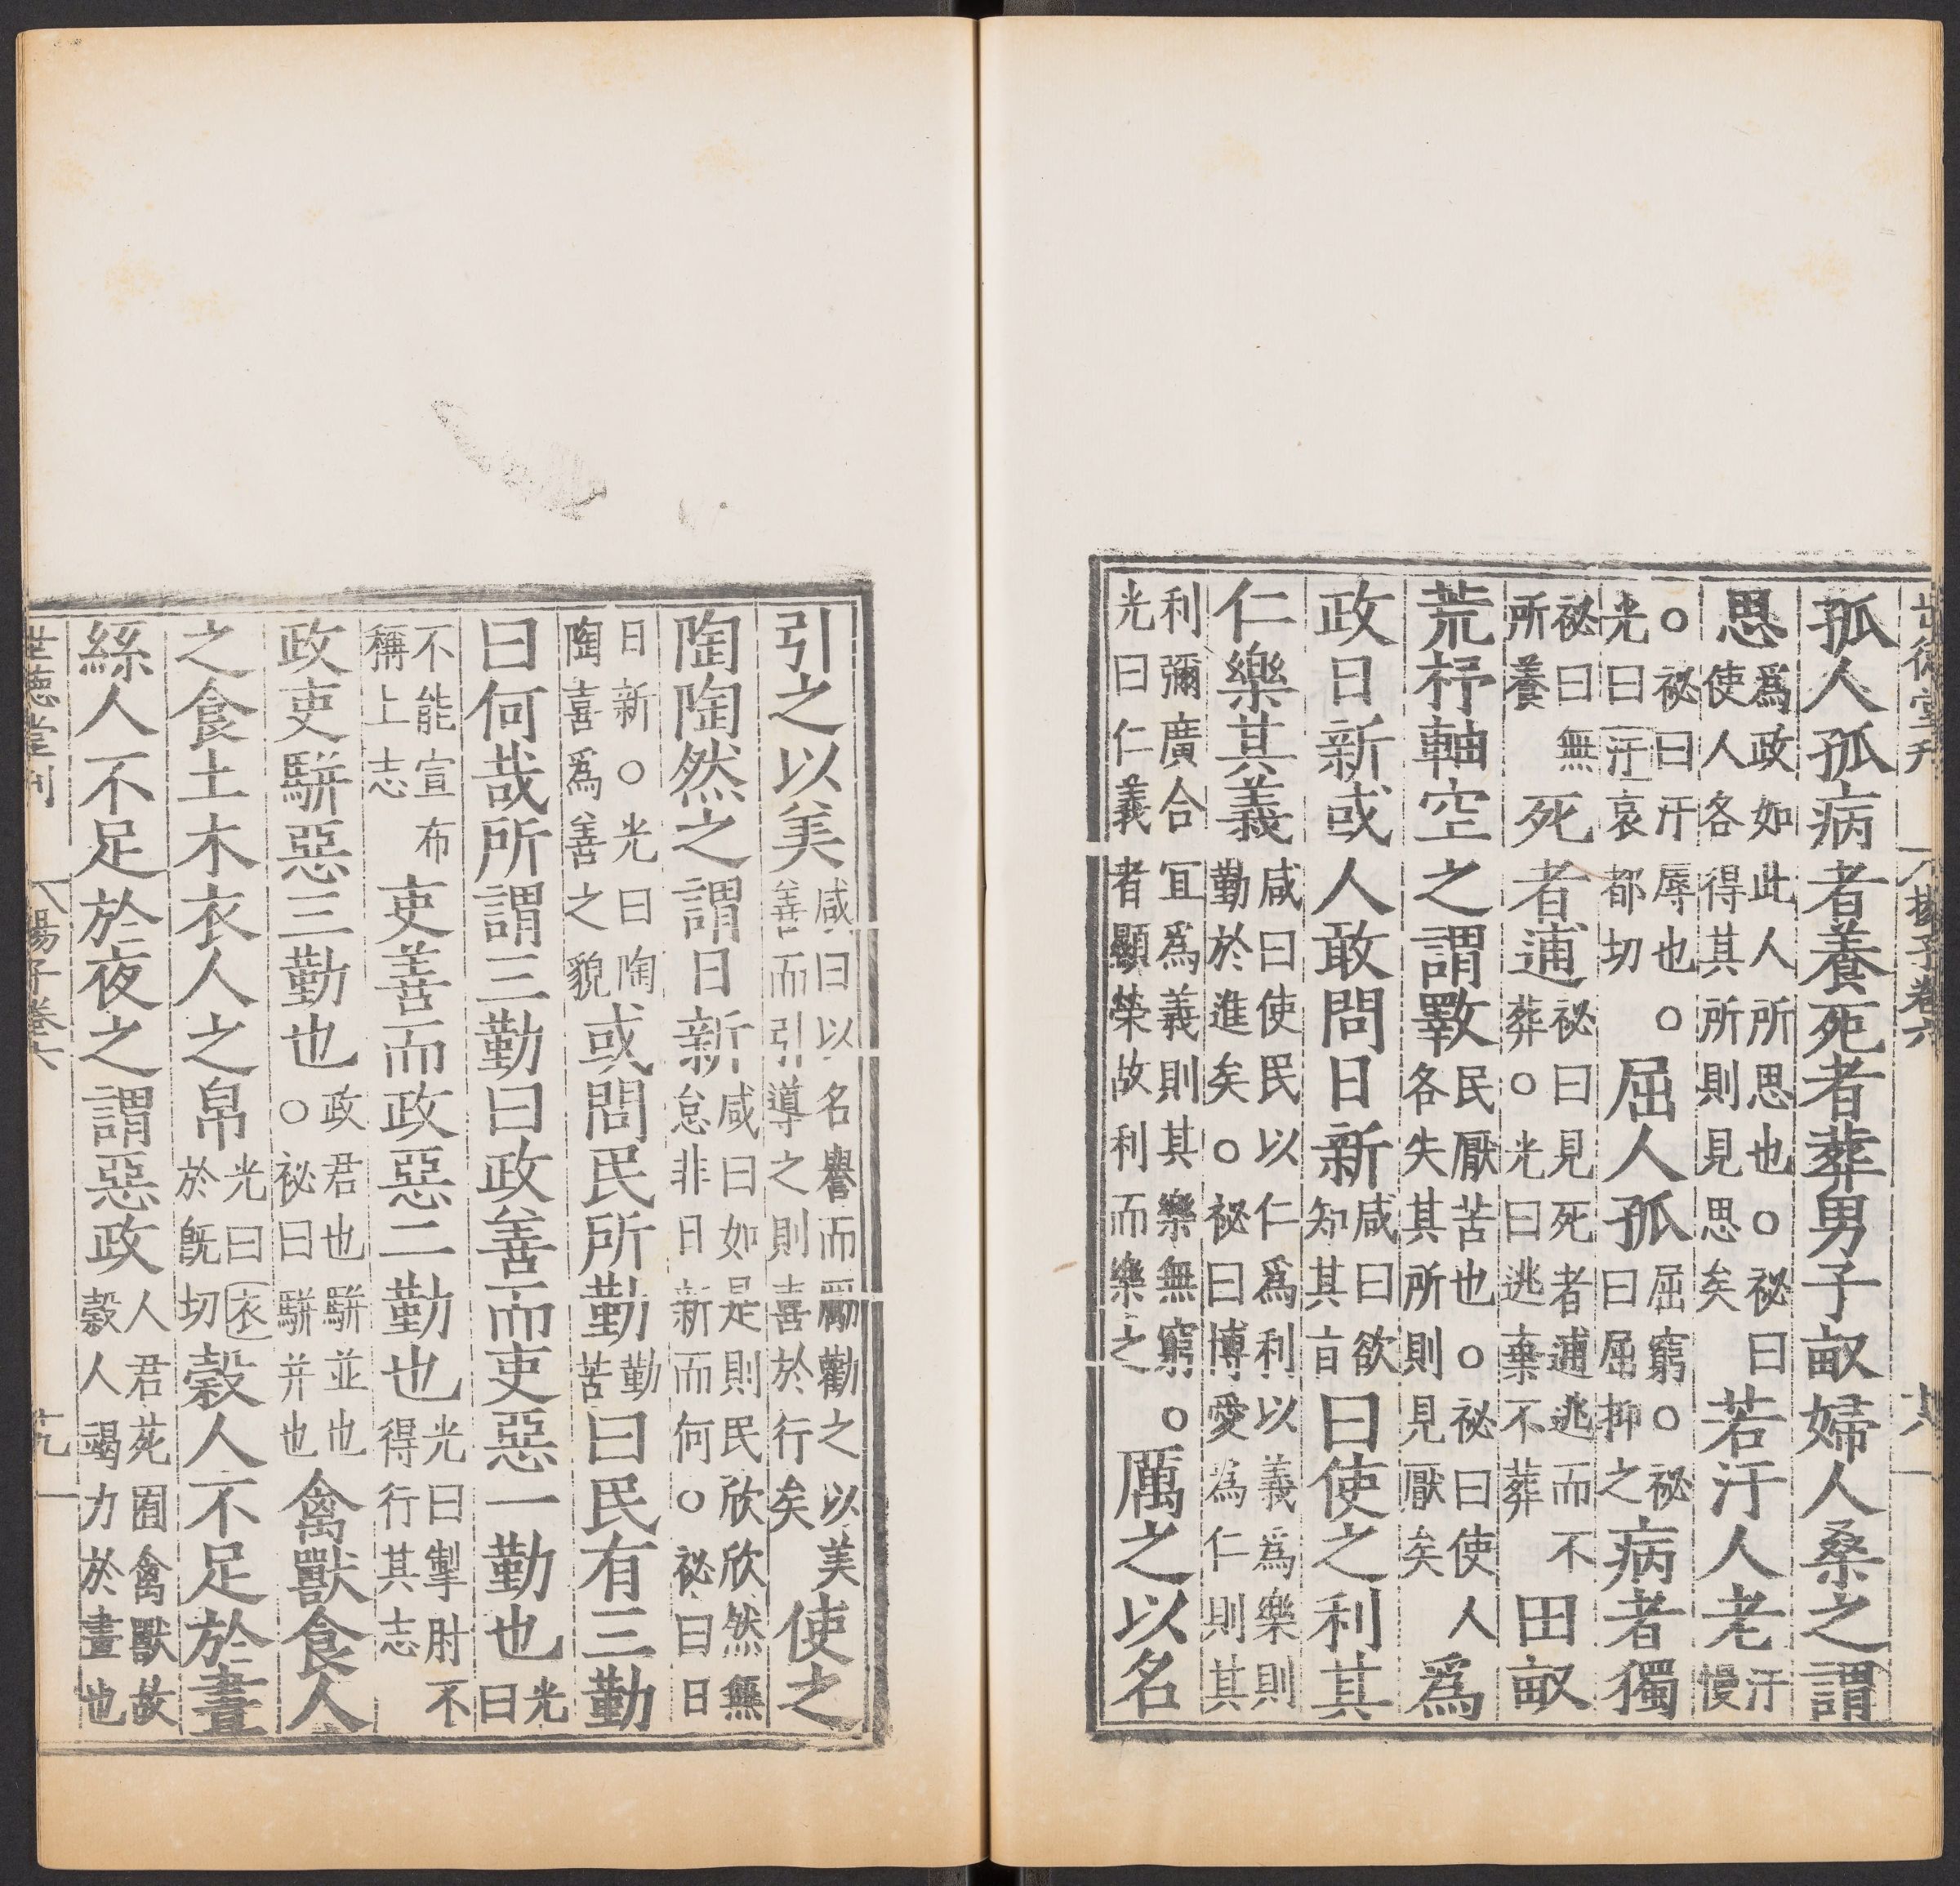 世德堂刊 揚子卷六 十八
孤人孤病者養死者葬男子畝婦人桑之謂
思爲政如此人所思也○祕曰使人各得其所則見思矣若汙人老汙慢
○祕曰汙辱也○光曰汙哀都切屈人孤屈窮○祕曰屈抑之病者獨
祕曰無所養死者逋祕曰見死者逋逃而不葬○光曰逃棄不葬田畝
荒杼軸空之謂斁民厭苦也○祕曰使人各失其所則見厭矣爲
政日新或人敢問日新咸曰欲知其㫖曰使之利其
仁樂其義咸曰使民以仁爲利以義爲樂則勤於進矣○祕曰博愛為仁則其
利彌廣合冝爲義則其樂無窮○光曰仁義者顯榮故利而樂之厲之以名
引之以美咸曰以名譽而勵勸之以美善而引導之則喜於行矣使之
陶陶然之謂日新咸曰如是則民欣欣然無怠非日新而何○祕曰日
日新○光曰陶陶喜爲善之貌或問民所勤勤苦曰民有三勤
曰何哉所謂三勤曰政善而吏惡一勤也光曰
不能宣布稱上志吏善而政惡二勤也光曰掣肘不得行其志
政吏駢惡三勤也政君也駢並也○祕曰駢并也禽獸食人
之食土木衣人之帛光曰衣於旣切穀人不足於晝
絲人不足於夜之謂惡政人君苑囿禽獸故穀人竭力於晝也
世德堂刊 楊子卷六 十九